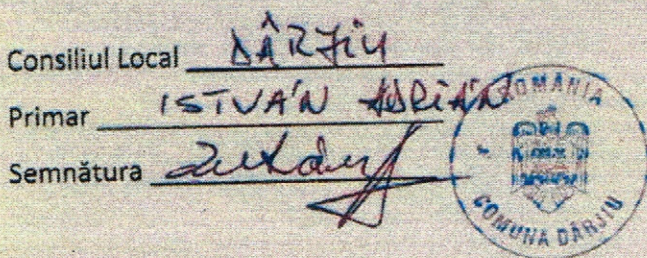 Consiliul Local DÂRJIU
Primar ISTVÁN ADRIÁN
Semnătura
ROMÂNIA
COMUNA DÂRJIU